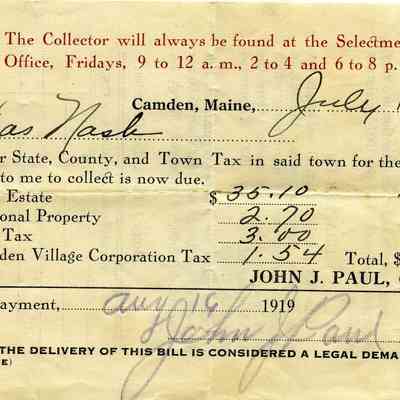 The Collector will always be found at the Selectme
Office, Fridays, 9 to 12 a. m., 2 to 4 and 6 to 8 p.
Camden, Maine, July 1
as Nash
r State, County, and Town Tax in said town for the
to me to collect is now due.
Estate $ 35.10
onal Property 2.70
Tax 3.00
den Village Corporation Tax 1.54 Total, $
JOHN J. PAUL,
ayment, aug 16 1919
John J Paul
THE DELIVERY OF THIS BILL IS CONSIDERED A LEGAL DEMA
E)